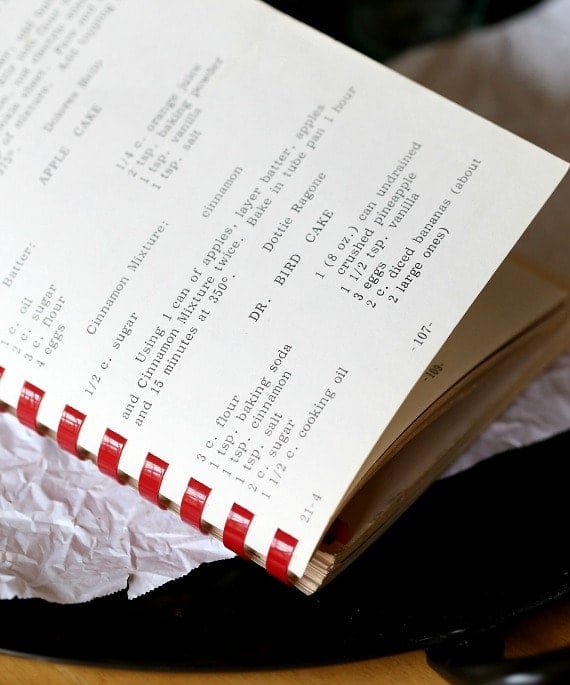 Dolores Bello
APPLE CAKE
Batter:
1 c. oil
2 c. sugar
3 c. flour
4 eggs
1/4 c. orange juice
2 tsp. baking powder
1 tsp. vanilla
1 tsp. salt
Cinnamon Mixture:
1/2 c. sugar
cinnamon
Using 1 can of apples, layer batter, apples
and Cinnamon Mixture twice. Bake in tube pan 1 hour
and 15 minutes at 350°.
Dottie Ragone
DR. BIRD CAKE
3 c. flour
1 tsp. baking soda
1 tsp. cinnamon
1 tsp. salt
2 c. sugar
1 1/2 c. cooking oil
1 (8 oz.) can undrained
crushed pineapple
1 1/2 tsp. vanilla
3 eggs
2 c. diced bananas (about
2 large ones)
21-4
-107-
-109-